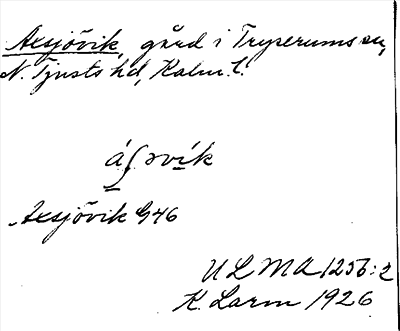 Axsjövik, gård i Tryserums sn,
N. Tjusts hd, Kalm. l.
áʃɔvík
Axsjövik G46
ULMA 1256:2
K. Larm 1926